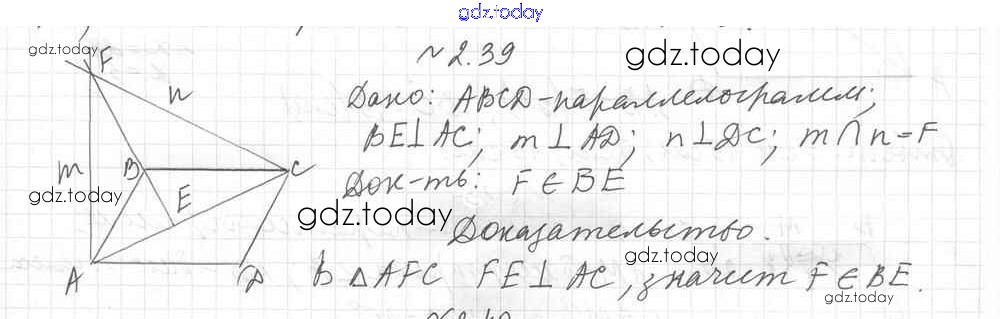 gdz.today
№2.39
gdz.today
gdz.today
Дано: ABCD-параллелограмм;
BE⊥AC; m⊥AD; n⊥DC; m∩n=F
Док-ть: F∈BE
gdz.today
gdz.today
Доказательство.
gdz.today
В △AFC FE⊥AC, значит F∈BE.
gdz.today
F
n
m
B
C
E
A
D